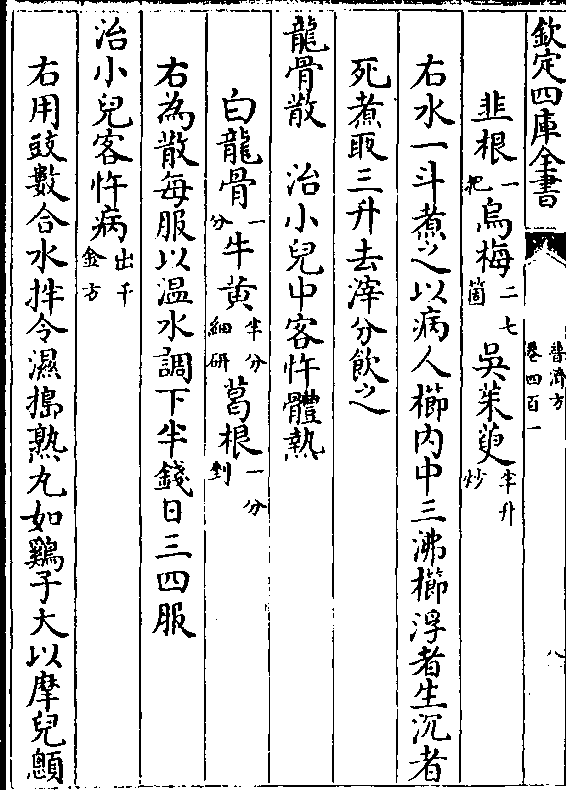 欽定四庫全書 普濟方 卷四百一 八
韭根一把烏梅二七箇吳茱萸半升炒
右水一斗煮之以病人櫛内中三沸櫛浮者生沉者
死煮取三升去滓分飲之
龍骨散 治小兒中客忤體熱
白龍骨一分牛黄半分細研葛根一分剉
右為散每服以溫水調下半錢日三四服
治小兒客忤病出千金方
右用豉數合水拌令濕搗熟丸如鷄子大以摩兒顖